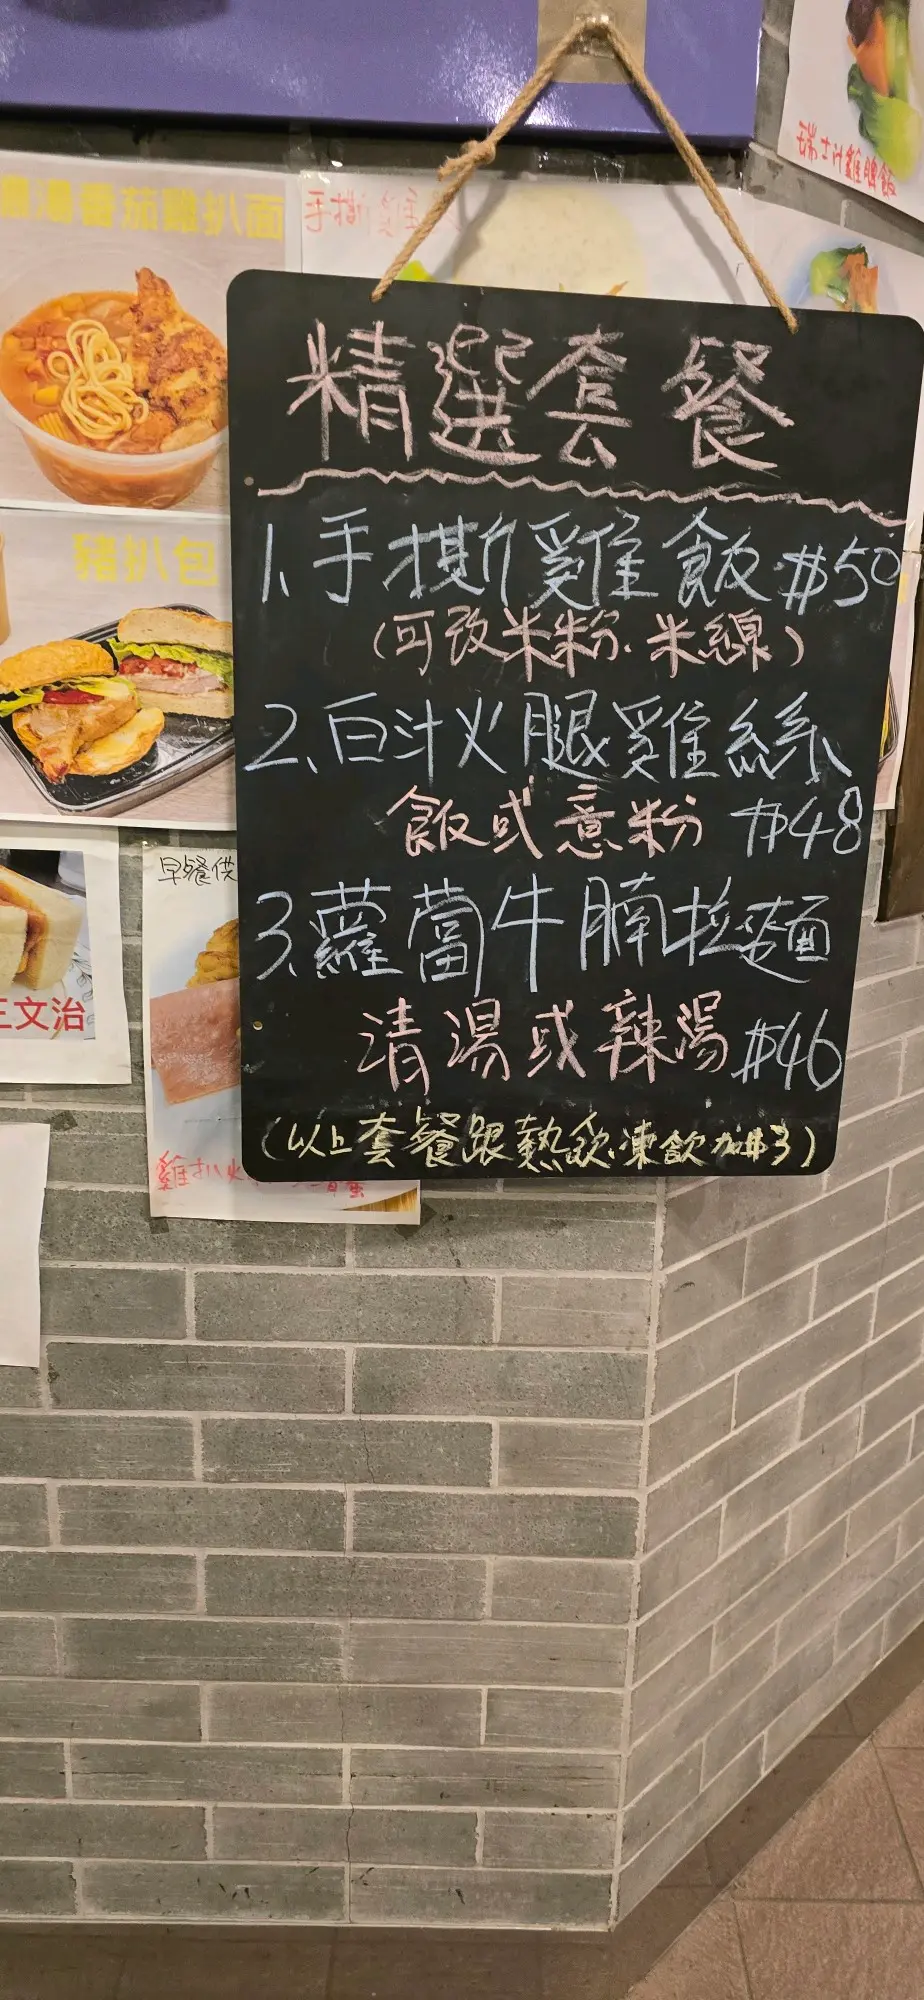 瑞士汁雞脾飯
湯番茄雞扒麵
手撕雞
豬扒包
精選套餐
1、手撕雞飯 $50
（可改米粉、米線）
2、白汁火腿雞絲
飯或意粉 $48
3、蘿蔔牛腩拉麵
清湯或辣湯 $46
（以上套餐跟熱飲、凍飲加$3）
早餐供
三文治
雞扒